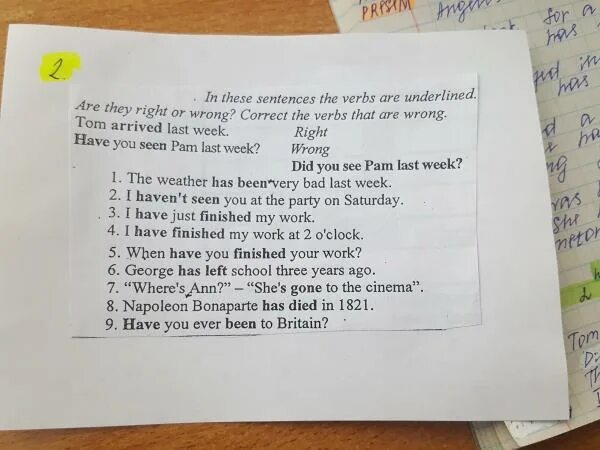 2.
In these sentences the verbs are underlined.
Are they right or wrong? Correct the verbs that are wrong.
Tom arrived last week. Right
Have you seen Pam last week? Wrong
Did you see Pam last week?
1. The weather has been very bad last week.
2. I haven't seen you at the party on Saturday.
3. I have just finished my work.
4. I have finished my work at 2 o'clock.
5. When have you finished your work?
6. George has left school three years ago.
7. "Where's Ann?" – "She's gone to the cinema".
8. Napoleon Bonaparte has died in 1821.
9. Have you ever been to Britain?
for a
has
has
Tom